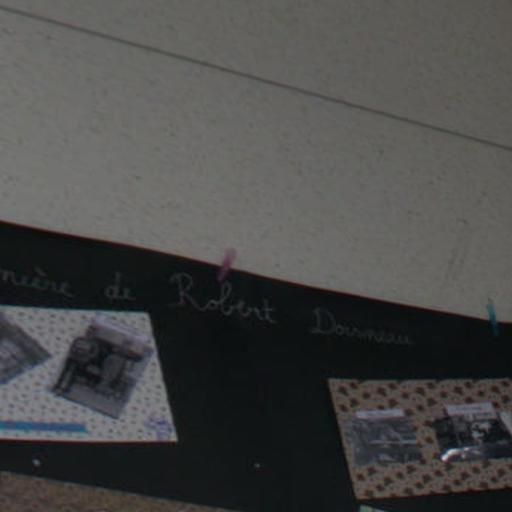 nière de Robert Doisneau